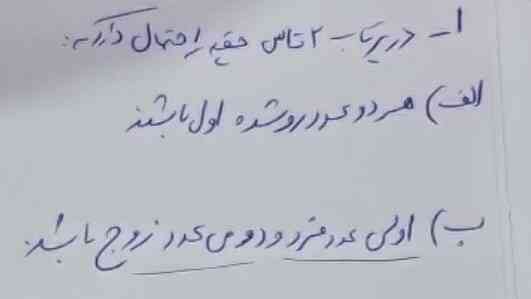 ۱- در پرتاب ۲ تاس چقدر احتمال دارد که:
الف) هر دو عدد رو شده اول باشند
ب) اولی عدد فرد و دومی عدد زوج باشد.